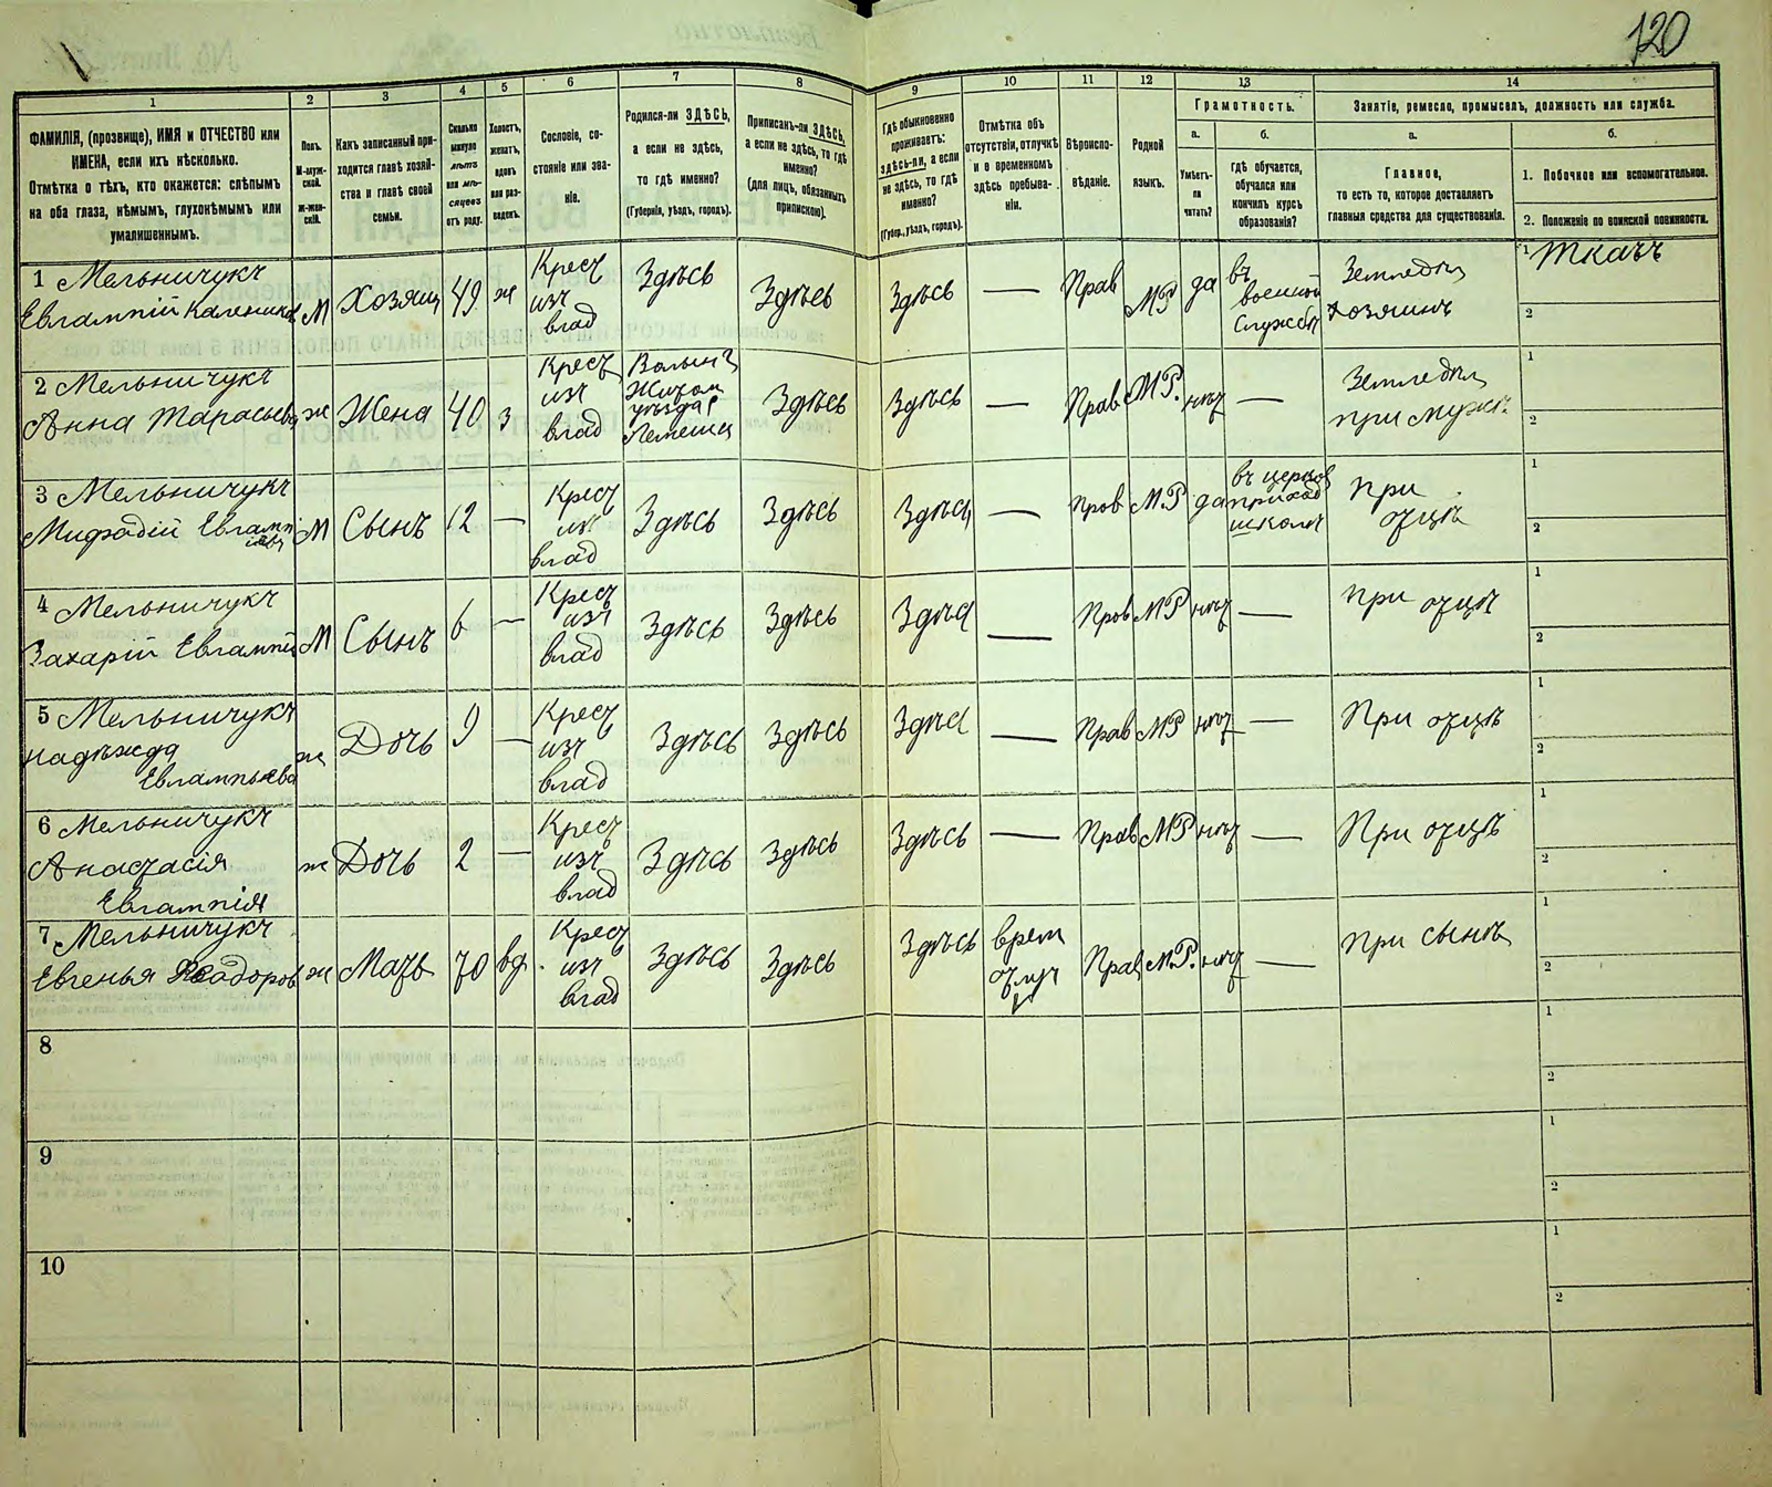 120
1 2 3 4 5 6 7 8 9 10 11 12 13 14
ФАМИЛІЯ, (прозвище), ИМЯ и ОТЧЕСТВО или
ИМЕНА, если ихъ нѣсколько.
Отмѣтка о тѣхъ, кто окажется: слѣпымъ
на оба глаза, нѣмымъ, глухонѣмымъ или
умалишеннымъ.
Полъ.
М-муж-
ской.
Ж-жен-
скій.
Какъ записанный при-
ходится главѣ хозяй-
ства и главѣ своей
семьи.
Сколько
минуло
лѣтъ
или мѣ-
сяцевъ
отъ роду.
Холостъ,
женатъ,
вдовъ
или раз-
веденъ.
Сословіе, со-
стояніе или зва-
ніе.
Родился-ли ЗДѢСЬ,
а если не здѣсь,
то гдѣ именно?
(Губернія, уѣздъ, городъ).
Приписанъ-ли ЗДѢСЬ,
а если не здѣсь, то гдѣ
именно?
(для лицъ, обязанныхъ
припискою).
Гдѣ обыкновенно
проживаетъ:
здѣсь-ли, а если
не здѣсь, то гдѣ
именно?
(Губер., уѣздъ, городъ).
Отмѣтка объ
отсутствіи, отлучкѣ
и о временномъ
здѣсь пребыва-
ніи.
Вѣроиспо-
вѣданіе.
Родной
языкъ.
Грамотность.
а.
Умѣетъ-
ли
читать?
б.
гдѣ обучается,
обучался или
кончилъ курсъ
образованія?
Занятіе, ремесло, промыселъ, должность или служба.
а.
Главное,
то есть то, которое доставляетъ
главныя средства для существованія.
б.
1. Побочное или вспомогательное.
2. Положеніе по воинской повинности.
1 Мельничукъ
Евлампій Калеников
М
Хозяин
49
ж
Крест
изъ
влад
Здѣсь
Здѣсь
Здѣсь
—
Прав
МР
да
въ
военной
службѣ
Земледѣл
хозяинъ
1 Ткачъ
2
2 Мельничукъ
Анна Тарасьева
ж
Жена
40
з
Крест
изъ
влад
Волын г
Житом
уѣзда
Лемеши
Здѣсь
Здѣсь
—
Прав
М.Р.
нѣт
—
Земледѣл
при мужѣ
1
2
3 Мельничукъ
Мифодій Евламп
іевъ
М
Сынъ
12
—
Крест
изъ
влад
Здѣсь
Здѣсь
Здѣсь
—
Прав
М.Р
да
въ церков
приход
школѣ
При
отцѣ
1
2
4 Мельничукъ
Захарій Евлампій
М
Сынъ
6
—
Крест
изъ
влад
Здѣсь
Здѣсь
Здѣсь
—
Прав
МР
нѣт
—
при отцѣ
1
2
5 Мельничукъ
Надѣжда
Евлампьева
ж
Дочь
9
—
Крест
изъ
влад
Здѣсь
Здѣсь
Здѣсь
—
Прав
МР
нѣт
—
При отцѣ
1
2
6 Мельничукъ
Анастасія
Евлампія
ж
Дочь
2
—
Крест
изъ
влад
Здѣсь
Здѣсь
Здѣсь
—
Прав
МР
нѣт
—
При отцѣ
1
2
7 Мельничукъ
Евгенья
ж
Мать
70
вд.
Крест
изъ
влад
Здѣсь
Здѣсь
Здѣсь
врем
отлуч
Прав
М.Р.
нѣт
—
При сынѣ
1
2
8
1
2
9
1
2
10
1
2